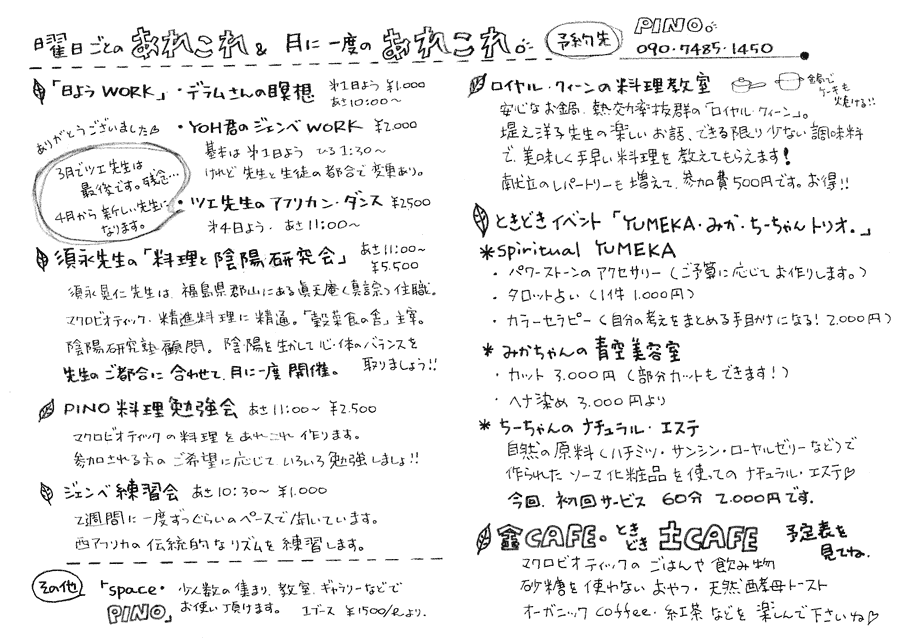 曜日ごとの あれこれ & 月に一度の あれこれ。
予約先
PINO
090・7485・1450
「日よう WORK」・デラムさんの瞑想 第1日よう ¥1.000
あさ10:00〜
ありがとうございました
3月でツェ先生は
最後です。残念…
4月から新しい先生に
なります。
・YOH君のジェンベWORK ¥2.000
基本は第1日よう ひる1:30〜
けれど先生と生徒の都合で変更あり。
・ツェ先生のアフリカン・ダンス ¥2500
第4日よう. あさ11:00〜
須永先生の「料理と陰陽研究会」 あさ11:00〜
¥5.500
須永晃仁先生は、福島県郡山にある眞天庵<真言宗>住職。
マクロビオティック・精進料理に精通。「穀菜食の舎」主宰。
陰陽研究塾顧問。陰陽を生かして心・体のバランスを
取りましょう!!
先生のご都合に合わせて、月に一度開催。
PINO 料理勉強会 あさ11:00〜 ¥2.500
マクロビオティックの料理をあれこれ作ります。
参加される方のご希望に応じていろいろ勉強しましょ!!
ジェンベ練習会 あさ10:30〜 ¥1.000
2週間に一度ずつぐらいのペースで開いています。
西アフリカの伝統的なリズムを練習します。
その他
「space・PINO」
少人数の集まり、教室、ギャラリーなどで
お使い頂けます。 1ブース ¥1500/Rより.
ロイヤル・クィーンの料理教室
鍋で
ケーキも
焼ける!!
安心なお鍋、熱効率抜群の「ロイヤル・クィーン」。
堤え洋子先生の楽しいお話、できる限り少ない調味料
で、美味しく手早い料理を教えてもらえます!
献立のレパートリーも増えて、参加費500円です。お得!!
ときどきイベント「YUMEKA・みか・ちーちゃんトリオ。」
*Spiritual YUMEKA
・パワーストーンのアクセサリー(ご予算に応じてお作りします。)
・タロット占い(1件 1.000円)
・カラーセラピー(自分の考えをまとめる手助けになる! 2.000円)
*みかちゃんの青空美容室
・カット 3.000円(部分カットもできます!)
・ヘナ染め 3.000円より
*ちーちゃんのナチュラル・エステ
自然の原料(ハチミツ・サンシン・ローヤルゼリーなど)で
作られたソーマ化粧品を使ってのナチュラル・エステ♡
今回、初回サービス 60分 2.000円です。
金CAFE。ときどき 土CAFE 予定表を
見てね。
マクロビオティックのごはんや飲み物
砂糖を使わないおやつ・天然酵母トースト
オーガニックcoffee・紅茶などを楽しんで下さいね♡